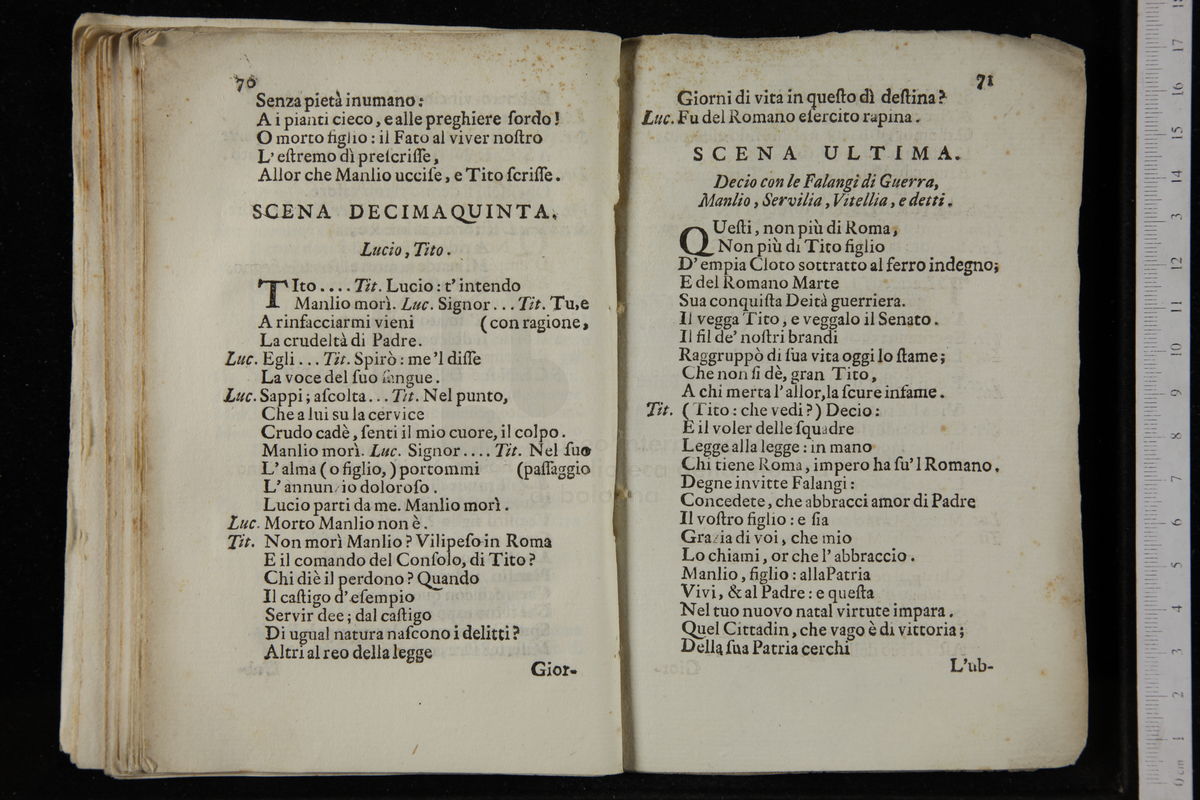 70
Senza pietà inumano:
A i pianti cieco, e alle preghiere ſordo!
O morto figlio: il Fato al viver noſtro
L'eſtremo dì preſcriſſe,
Allor che Manlio ucciſe, e Tito ſcriſſe.
SCENA DECIMAQUINTA.
Lucio, Tito.
TIto.... Tit. Lucio: t'intendo
Manlio morì. Luc. Signor... Tit. Tu, e
A rinfacciarmi vieni (con ragione,
La crudeltà di Padre.
Luc. Egli... Tit. Spirò: me'l diſſe
La voce del ſuo ſangue.
Luc. Sappi; aſcolta... Tit. Nel punto,
Che a lui su la cervice
Crudo cadè, ſenti il mio cuore, il colpo.
Manlio morì. Luc. Signor.... Tit. Nel ſuo
L'alma (o figlio,) portommi (paſſaggio
L'annunzio doloroſo.
Lucio parti da me. Manlio morì.
Luc. Morto Manlio non è.
Tit. Non morì Manlio? Vilipeſo in Roma
E il comando del Conſolo, di Tito?
Chi diè il perdono? Quando
Il caſtigo d'eſempio
Servir dee; dal caſtigo
Di ugual natura naſcono i delitti?
Altri al reo della legge
Gior-
71
Giorni di vita in queſto dì deſtina?
Luc. Fu del Romano eſercito rapina.
SCENA ULTIMA.
Decio con le Falangi di Guerra,
Manlio, Servilia, Vitellia, e detti.
QUeſti, non più di Roma,
Non più di Tito figlio
D'empia Cloto sottratto al ferro indegno;
E del Romano Marte
Sua conquiſta Deità guerriera.
Il vegga Tito, e veggalo il Senato.
Il fil de' noſtri brandi
Raggruppò di ſua vita oggi lo ſtame;
Che non ſi dè, gran Tito,
A chi merta l'allor, la ſcure infame.
Tit. (Tito: che vedi?) Decio:
E il voler delle ſquadre
Legge alla legge: in mano
Chi tiene Roma, impero ha ſu'l Romano.
Degne invitte Falangi:
Concedete, che abbracci amor di Padre
Il voſtro figlio: e ſia
Grazia di voi, che mio
Lo chiami, or che l'abbraccio.
Manlio, figlio: alla Patria
Vivi, & al Padre: e queſta
Nel tuo nuovo natal virtute impara.
Quel Cittadin, che vago è di vittoria;
Della ſua Patria cerchi
L'ub-